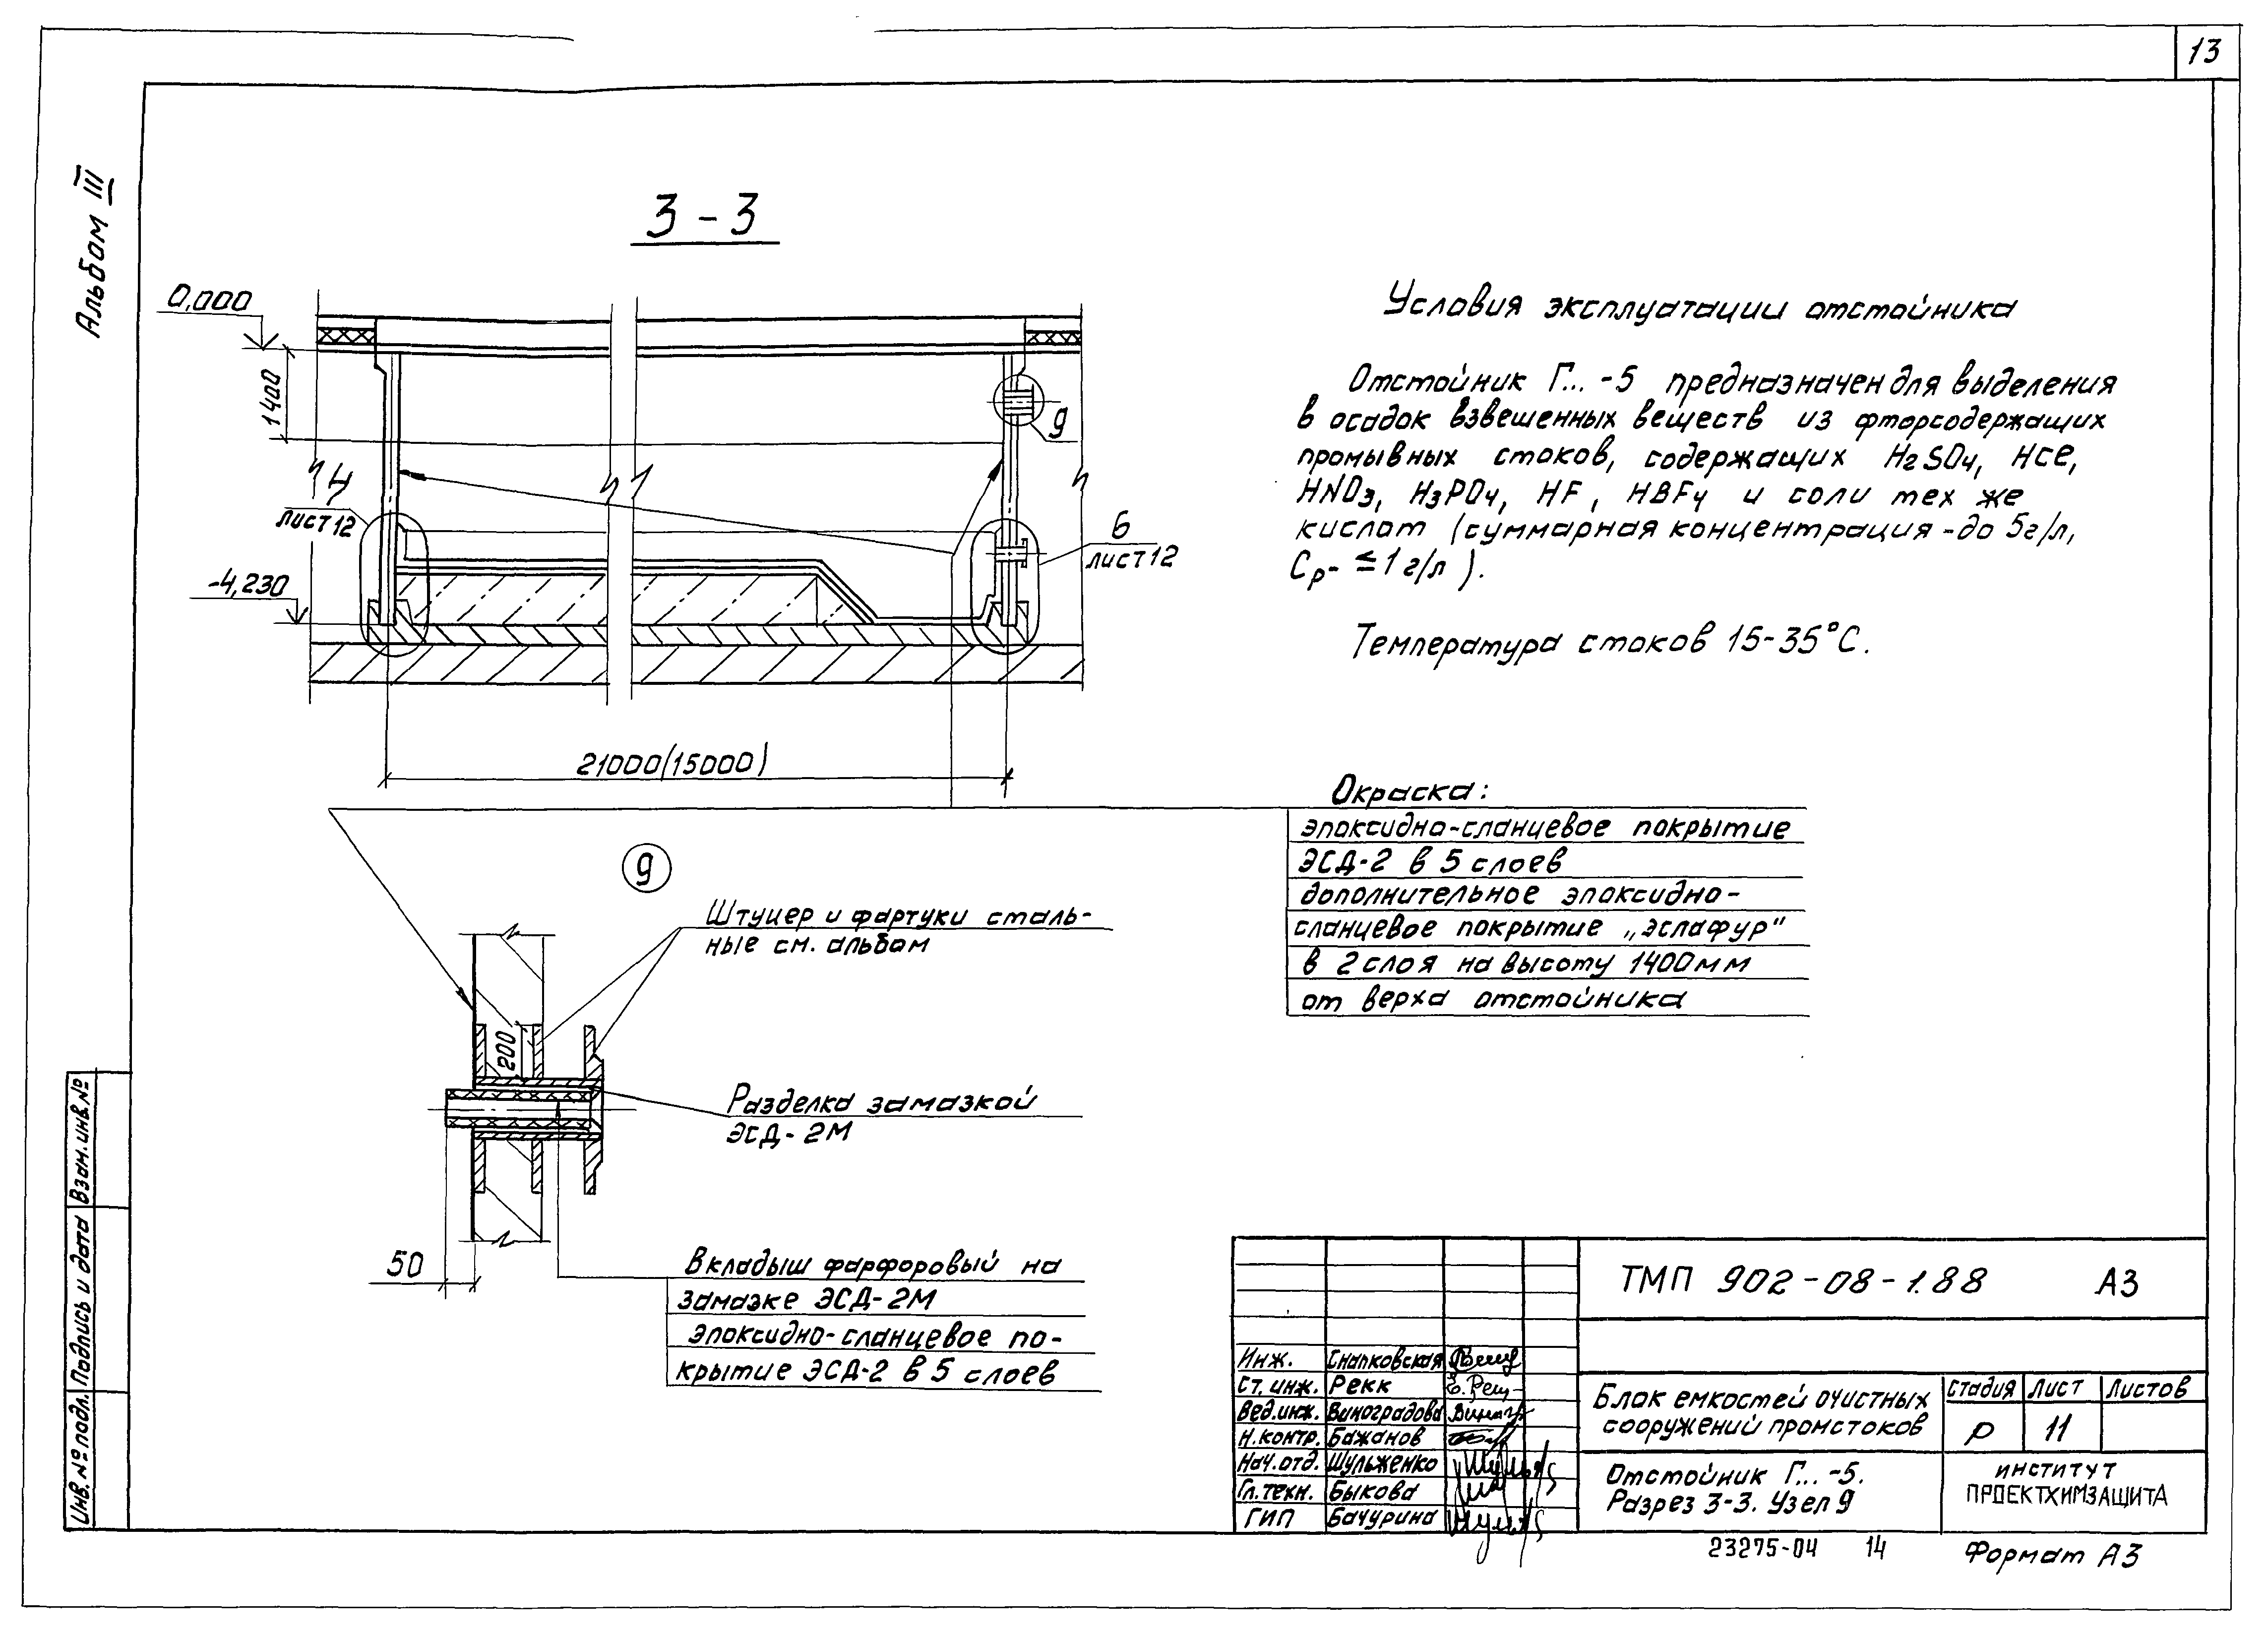 13
Альбом III
3-3
0,000
1400
4
лист 12
-4,230
9
6
лист 12
21000(15000)
Условия эксплуатации отстойника
Отстойник Г... -5 предназначен для выделения
в осадок взвешенных веществ из фторсодержащих
промывных стоков, содержащих H2SO4, HCl,
HNO3, H3PO4, HF, HBF4 и соли тех же
кислот (суммарная концентрация - до 5г/л,
CF- ≤ 1 г/л ).
Температура стоков 15-35°С.
Окраска:
эпоксидно-сланцевое покрытие
ЭСД-2 в 5 слоев
дополнительное эпоксидно-
сланцевое покрытие „эслафур"
в 2 слоя на высоту 1400мм
от верха отстойника
9
Штуцер и фартуки сталь-
ные см. альбом
200
Разделка замазкой
ЭСД-2М
50
Вкладыш фарфоровый на
замазке ЭСД-2М
эпоксидно-сланцевое по-
крытие ЭСД-2 в 5 слоев
Инв.№ подл.
Подпись и дата
Взам.инв.№
ТМП 902-08-1.88 А3
Инж. Снапковская
Ст. инж. Рекк
Вед.инж. Виноградова
Н.контр. Бажанов
Нач.отд. Шульженко
Гл.техн. Быкова
ГИП Бачурина
Блок емкостей очистных
сооружений промстоков
Стадия Лист Листов
Р 11
Отстойник Г... -5.
Разрез 3-3. Узел 9
ИНСТИТУТ
ПРОЕКТХИМЗАЩИТА
23275-04 14
Формат А3